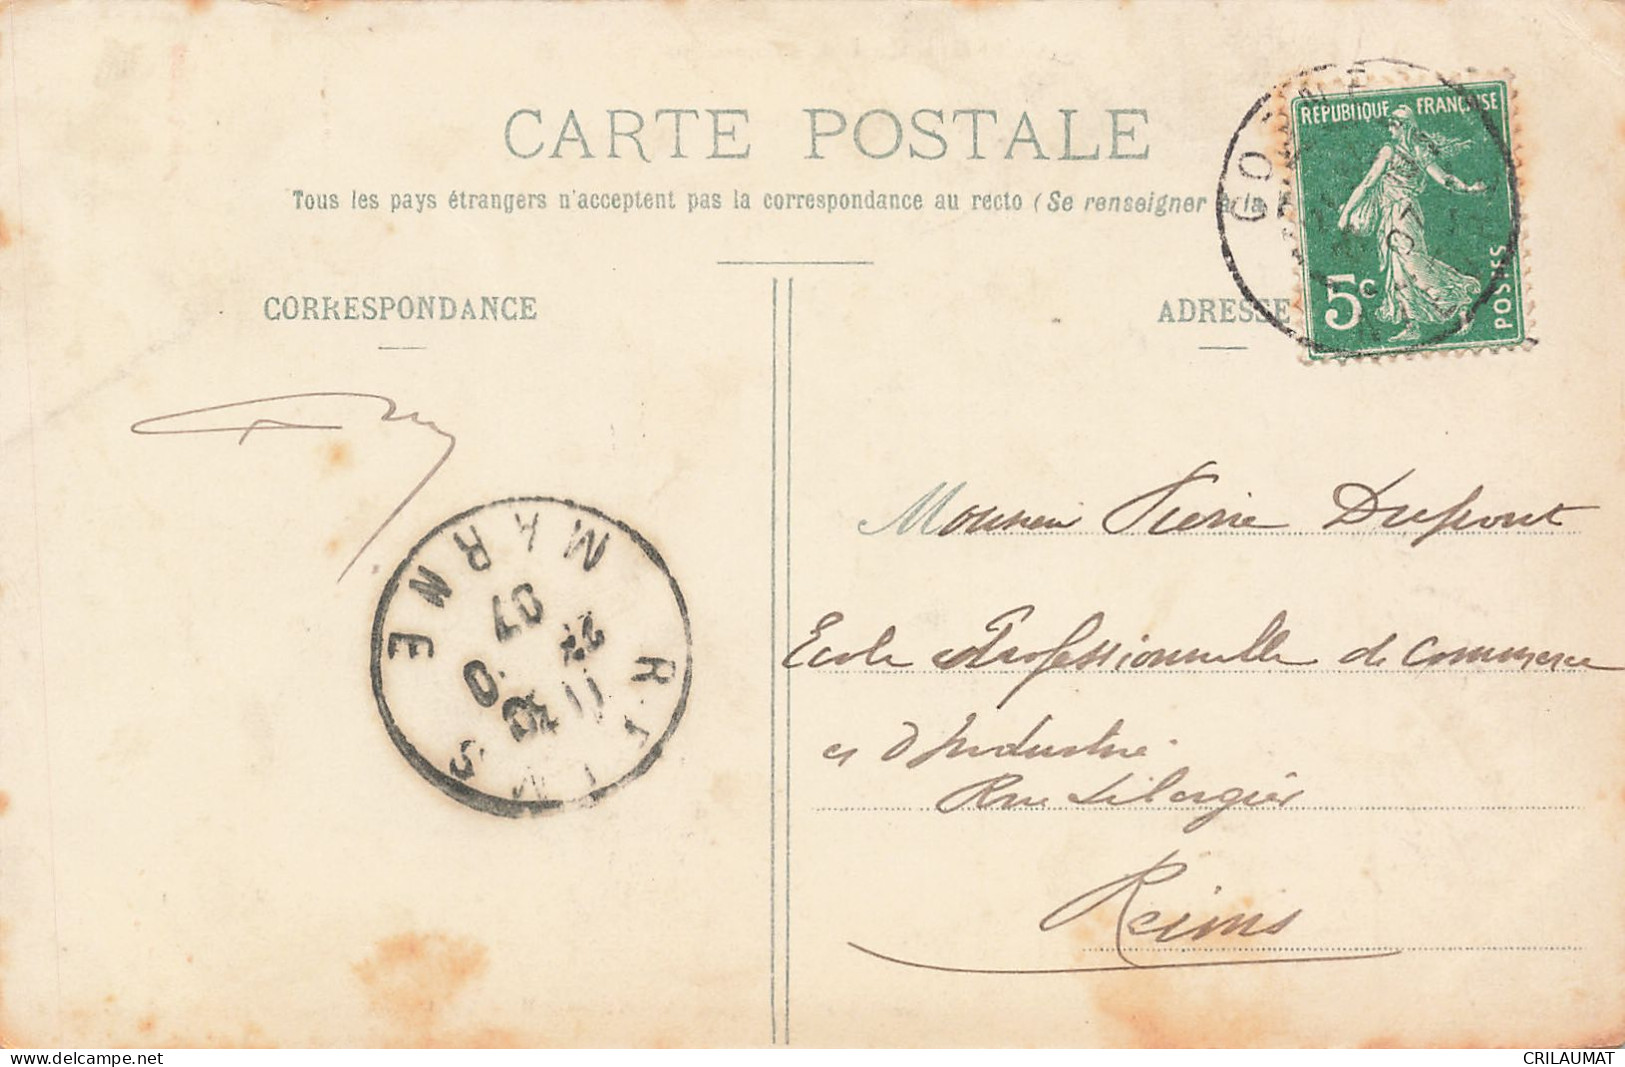 CARTE POSTALE
Tous les pays étrangers n'acceptent pas la correspondance au recto (Se renseigner à la
RÉPUBLIQUE FRANÇAISE
5c
POSTES
CORRESPONDANCE
ADRESSE
Monsieur Pierre Dupont
Ecole Professionnelle de Commerce
et d'Industrie
Rue Libergier
Reims
REIMS
MARNE
11 30
22
07
CRILAUMAT